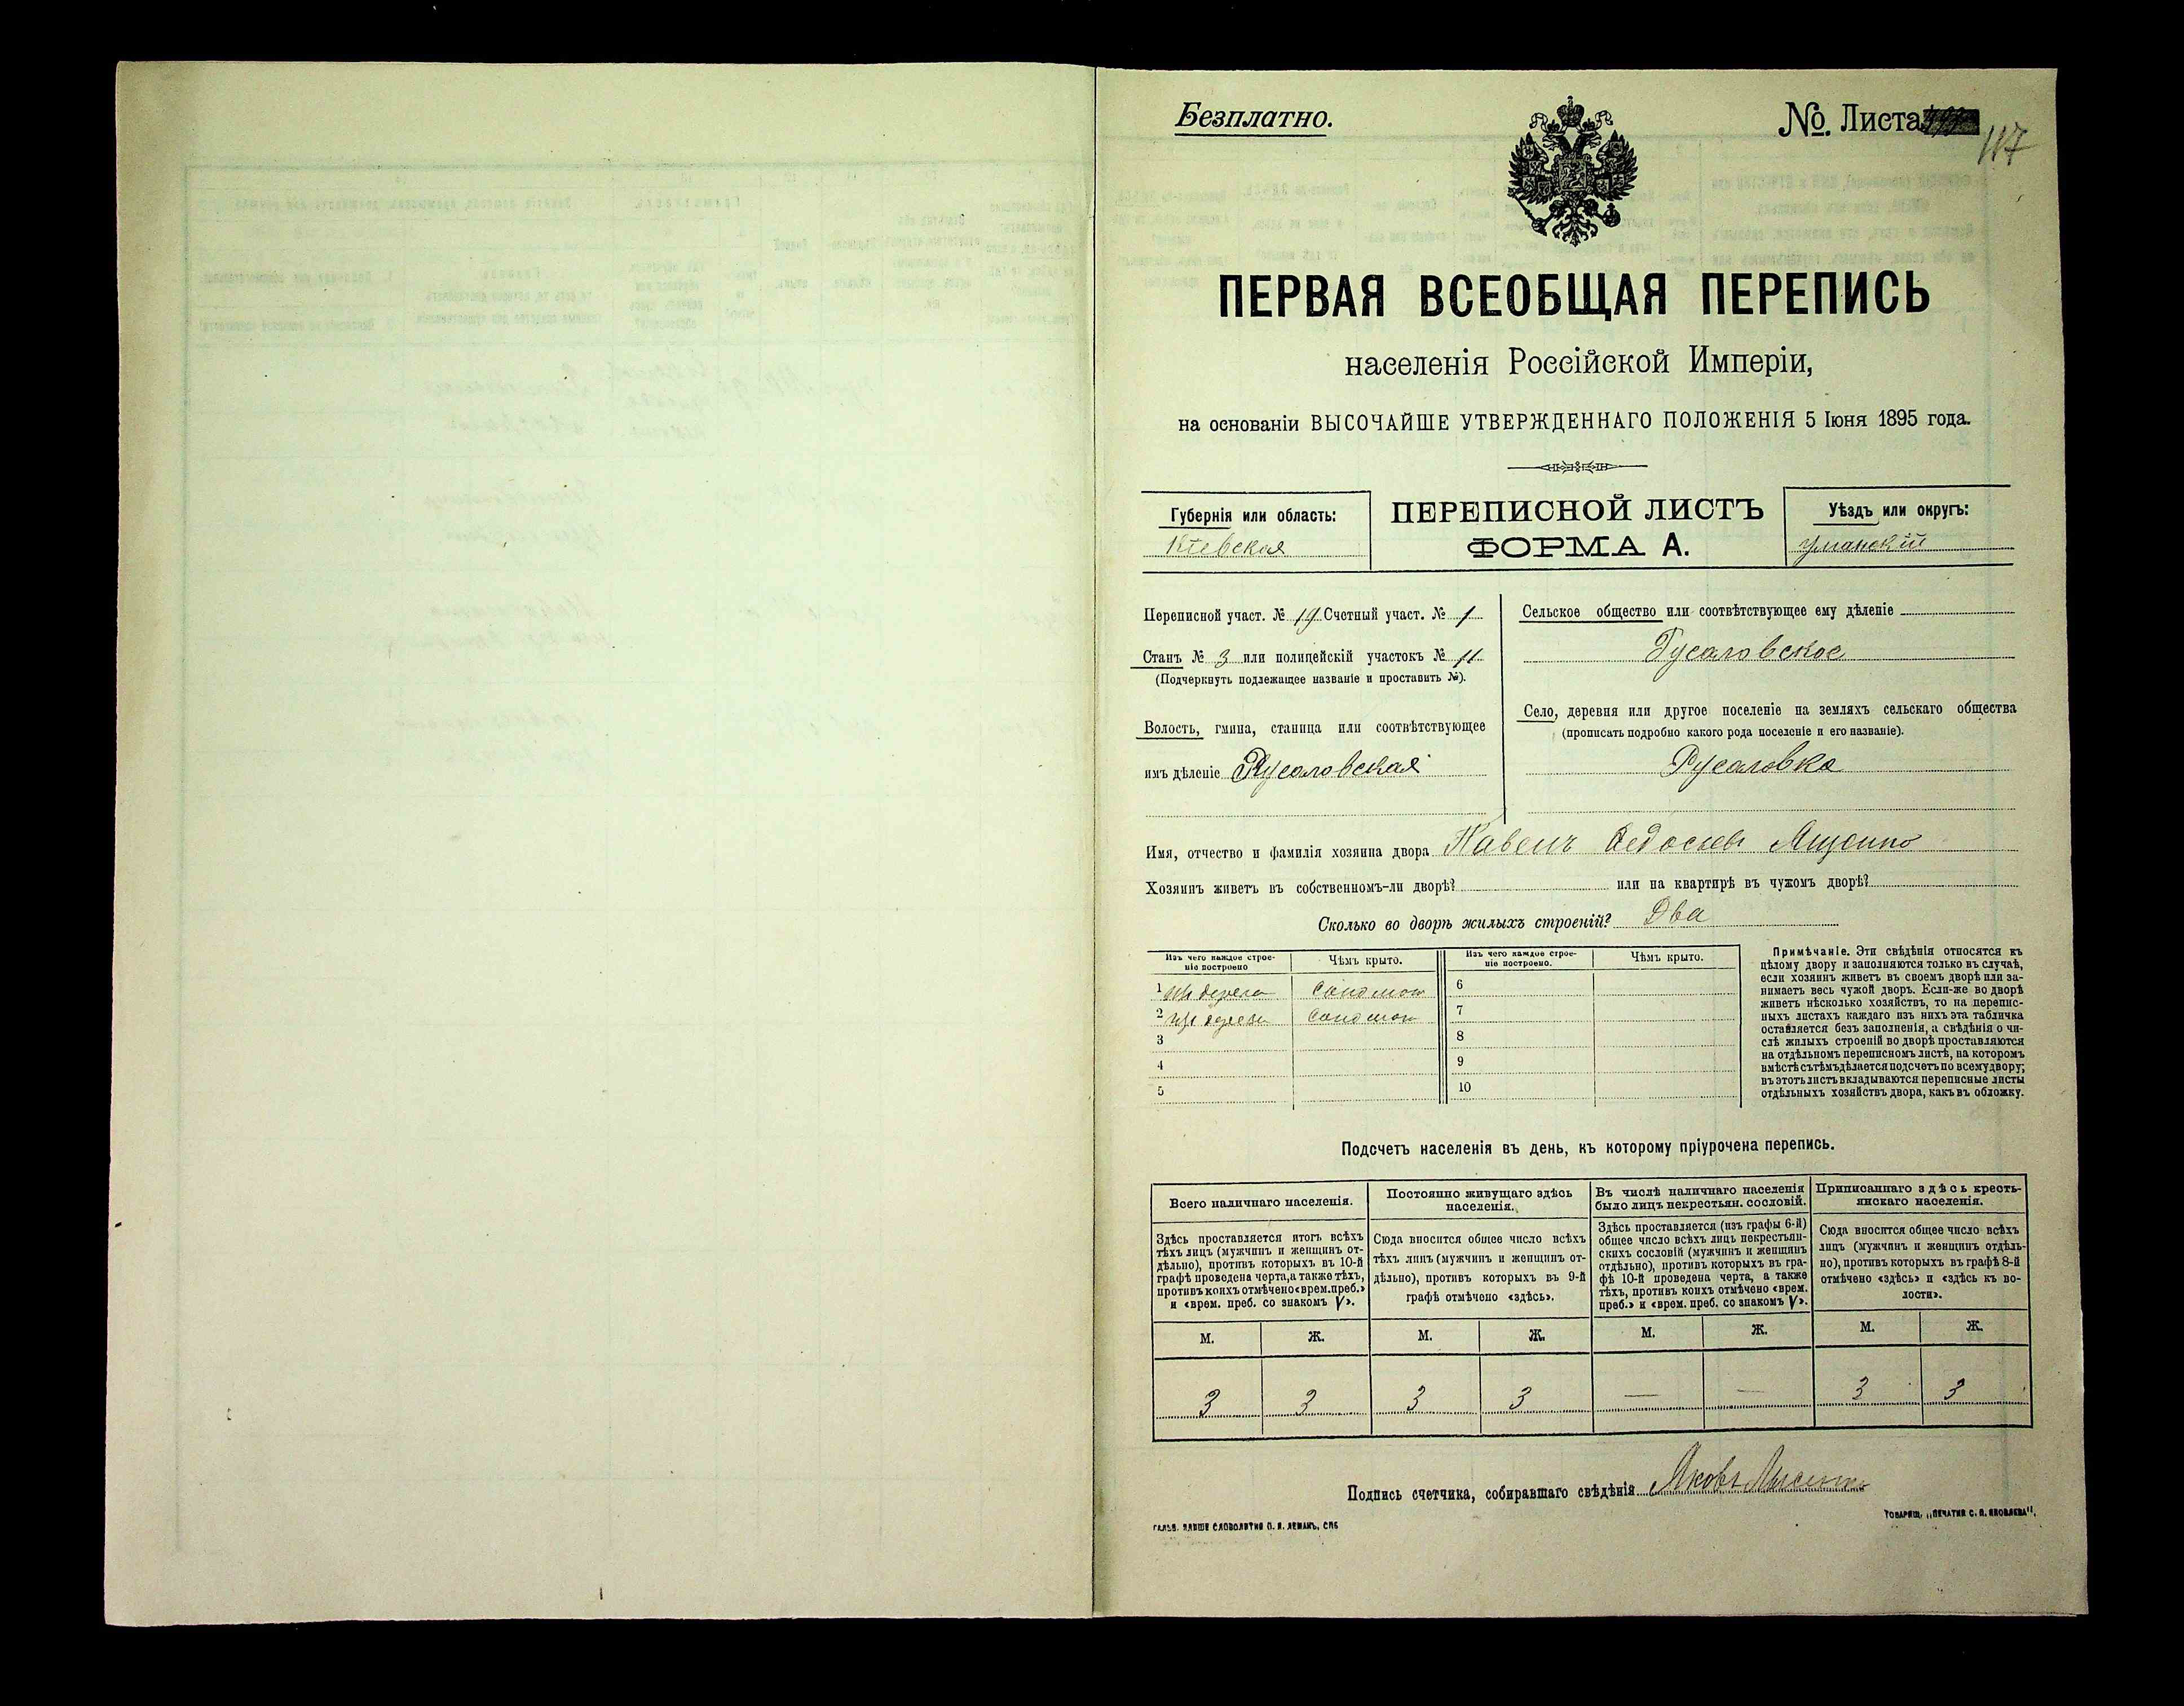 Безплатно.
№. Листа
117
ПЕРВАЯ ВСЕОБЩАЯ ПЕРЕПИСЬ
населенія Россійской Имперіи,
на основаніи ВЫСОЧАЙШЕ УТВЕРЖДЕННАГО ПОЛОЖЕНІЯ 5 Іюня 1895 года.
Губернія или область:
Кіевская
ПЕРЕПИСНОЙ ЛИСТЪ
ФОРМА А.
Уѣздъ или округъ:
Уманскій
Переписной участ. № 19 Счетный участ. № 1
Станъ № 3 или полицейскій участокъ № 11
(Подчеркнуть подлежащее названіе и проставить №).
Волость, гмина, станица или соотвѣтствующее
имъ дѣленіе Русаловская
Сельское общество или соотвѣтствующее ему дѣленіе
Русаловское
Село, деревня или другое поселеніе на земляхъ сельскаго общества
(прописать подробно какого рода поселеніе и его названіе).
Русаловка
Имя, отчество и фамилія хозяина двора Павелъ Федосіевъ
Хозяинъ живетъ въ собственномъ-ли дворѣ? или на квартирѣ въ чужомъ дворѣ?
Сколько во дворѣ жилыхъ строеній? Два
Изъ чего каждое строе-
ніе построено
Чѣмъ крыто.
Изъ чего каждое строе-
ніе построено.
Чѣмъ крыто.
1 изъ дерева соломою 6
2 изъ дерева соломою 7
3 8
4 9
5 10
Примѣчаніе. Эти свѣдѣнія относятся къ
цѣлому двору и заполняются только въ случаѣ,
если хозяинъ живетъ въ своемъ дворѣ или за-
нимаетъ весь чужой дворъ. Если-же во дворѣ
живетъ нѣсколько хозяйствъ, то на перепис-
ныхъ листахъ каждаго изъ нихъ эта табличка
оставляется безъ заполненія, а свѣдѣнія о чи-
слѣ жилыхъ строеній во дворѣ проставляются
на отдѣльномъ переписномъ листѣ, на которомъ
вмѣстѣ съ тѣмъ дѣлается подсчетъ по всему двору;
въ этотъ листъ вкладываются переписные листы
отдѣльныхъ хозяйствъ двора, какъ въ обложку.
Подсчетъ населенія въ день, къ которому пріурочена перепись.
Всего наличнаго населенія.
Здѣсь проставляется итогъ всѣхъ
тѣхъ лицъ (мужчинъ и женщинъ от-
дѣльно), противъ которыхъ въ 10-й
графѣ проведена черта, а также тѣхъ,
противъ коихъ отмѣчено «врем. преб.»
и «врем. преб. со знакомъ V».
Постоянно живущаго здѣсь
населенія.
Сюда вносится общее число всѣхъ
тѣхъ лицъ (мужчинъ и женщинъ от-
дѣльно), противъ которыхъ въ 9-й
графѣ отмѣчено «здѣсь».
Въ числѣ наличнаго населенія
было лицъ некрестьян. сословій.
Здѣсь проставляется (изъ графы 6-й)
общее число всѣхъ лицъ некрестьян-
скихъ сословій (мужчинъ и женщинъ
отдѣльно), противъ которыхъ въ гра-
фѣ 10-й проведена черта, а также
тѣхъ, противъ коихъ отмѣчено «врем.
преб.» и «врем. преб. со знакомъ V».
Приписаннаго здѣсь кресть-
янскаго населенія.
Сюда вносится общее число всѣхъ
лицъ (мужчинъ и женщинъ отдѣль-
но), противъ которыхъ въ графѣ 8-й
отмѣчено «здѣсь» и «здѣсь къ во-
лости».
М. Ж. М. Ж. М. Ж. М. Ж.
3 3 3 3 — — 3 3
Подпись счетчика, собиравшаго свѣдѣнія Яковъ Лысенко
ГАЛЬВ. КЛИШЕ СЛОВОЛИТНИ О. И. ЛЕМАНЪ, СПБ
ТОВАРИЩ. „ПЕЧАТНЯ С. П. ЯКОВЛЕВА".